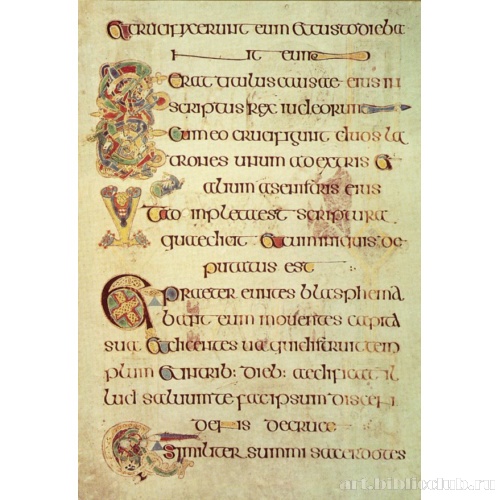 et crucifixerunt eum et custodieba
it eum
Et erat titulus causae eius in
scriptus rex iudeorum
Et cum eo crucifigunt duos la
trones unum adextris et
alium asinistris eius
Et adimpleta est scriptura
quae dicit et cum iniquis de
putatus est
Et praeter euntes blasphema
bant eum mouentes capita
sua et dicentes ua qui distruit tem
plum et in trib: dieb: aedificat il
lud saluum te fac ipsum discen
dens decruce
Et similiter summi sacerdotes
art.biblioclub.ru